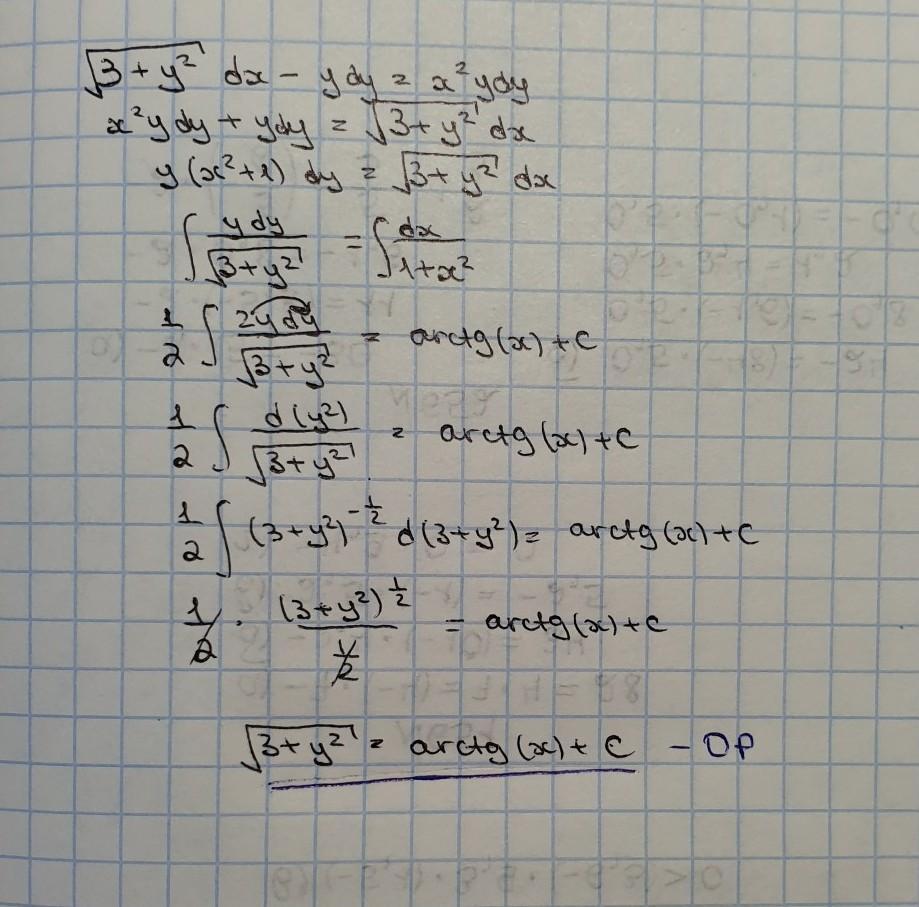 √(3 + y²) dx − y dy = x² y dy
x² y dy + y dy = √(3 + y²) dx
y (x² + 1) dy = √(3 + y²) dx
∫ y dy / √(3 + y²) = ∫ dx / (1 + x²)
1/2 ∫ 2y dy / √(3 + y²) = arctg(x) + C
1/2 ∫ d(y²) / √(3 + y²) = arctg(x) + C
1/2 ∫ (3 + y²)^(-1/2) d(3 + y²) = arctg(x) + C
1/2 · (3 + y²)^(1/2) / (1/2) = arctg(x) + C
√(3 + y²) = arctg(x) + C − ОР